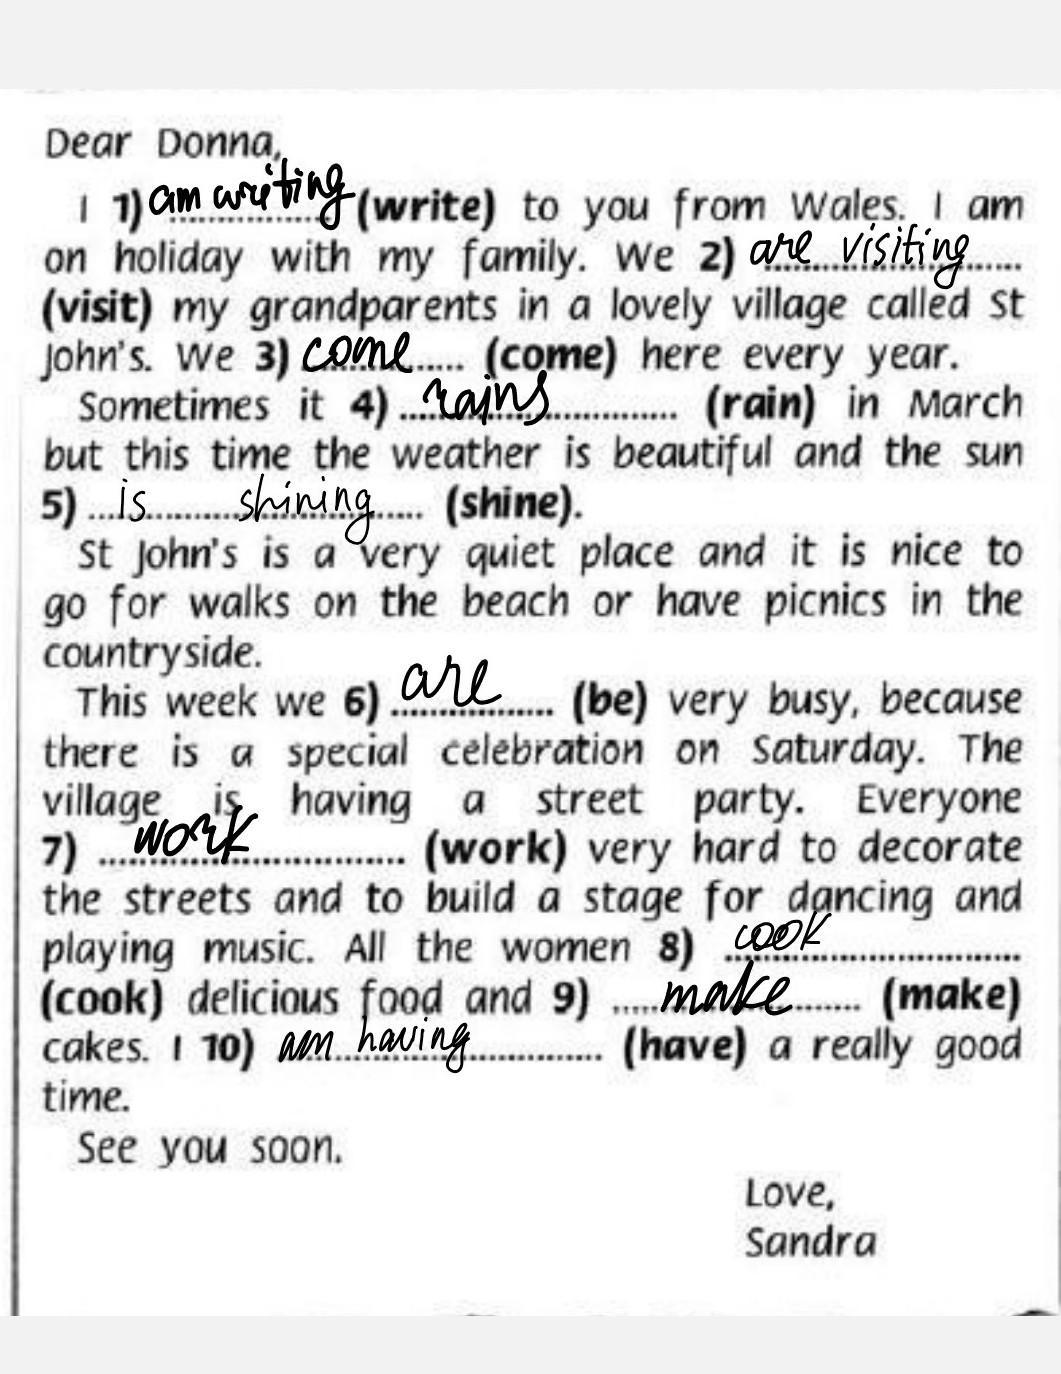 Dear Donna,
I 1) am writing (write) to you from Wales. I am
on holiday with my family. We 2) are visiting
(visit) my grandparents in a lovely village called St
John's. We 3) come (come) here every year.
Sometimes it 4) rains (rain) in March
but this time the weather is beautiful and the sun
5) is shining (shine).
St John's is a very quiet place and it is nice to
go for walks on the beach or have picnics in the
countryside.
This week we 6) are (be) very busy, because
there is a special celebration on Saturday. The
village is having a street party. Everyone
7) work (work) very hard to decorate
the streets and to build a stage for dancing and
playing music. All the women 8) cook
(cook) delicious food and 9) make (make)
cakes. I 10) am having (have) a really good
time.
See you soon.
Love,
Sandra